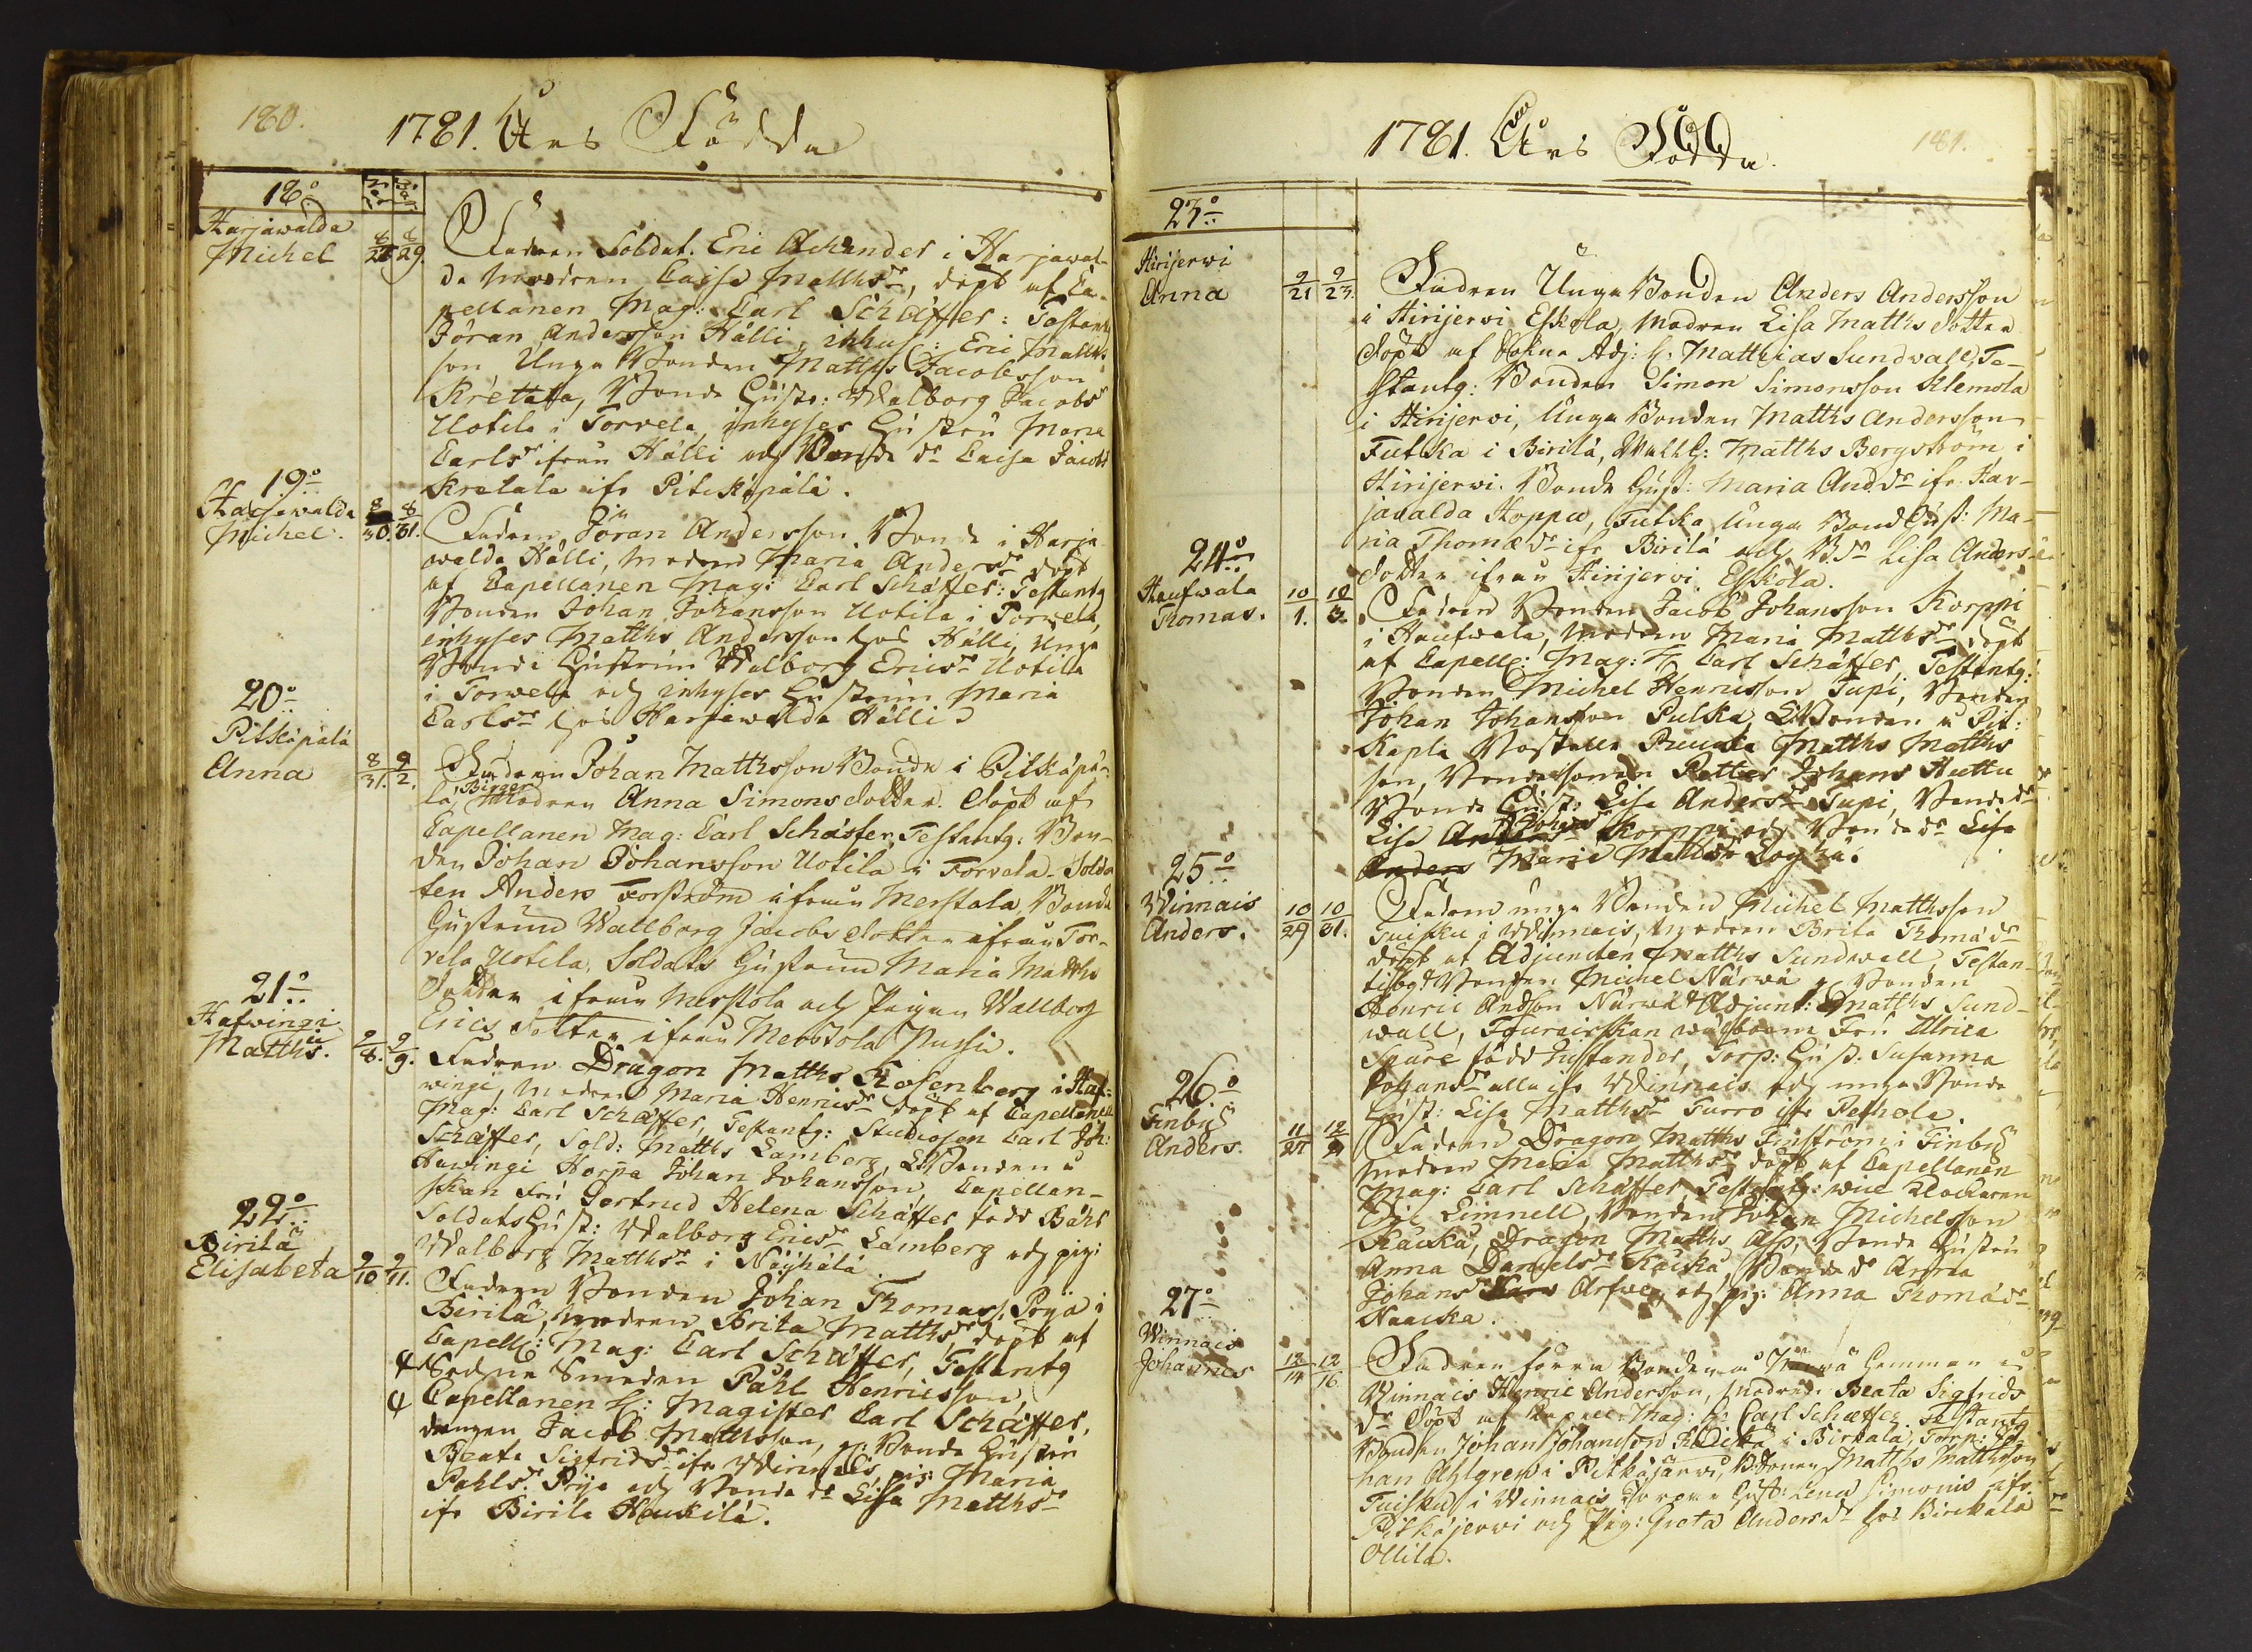 180.
1781. Års Födda
18o
Harjawalda
Michel 8/28 8/29.
Fadren Soldat. Eric Ackander i Harjawal-
da Modren Caisa Matthsdr, döpt af Ca-
pellanen Mag: Carl Schäffer: Testantg
Jöran Andersson Hälli, inhys: Eric Matths
son, Unga Bonden Matths Jacobsson
Kretala, Bonde Hustr: Walborg Jacobsdr
Uotila i Torvela, inhyses Hustru Maria
Carlsdr ifrån Hälli och Bonde dr Caisa Jacobsdr
Kretala ifr Pitkäpälä.
19o
Harjawalda
Michel. 8/30. 8/31.
Fadren Jöran Andersson Bonde i Harja
walda Hälli, modren Maria Andersdr döpt
af Capellanen Mag: Carl Schäffer: Testantg
Bonden Johan Johansson Uotila i Torwela,
inhyses Matths Andersson hos Hälli, Unga
Bonde Hustrun Walborg Ericsdr Uotila
i Torwela och inhyses Hustrun Maria
Carlsdr hos Harjawalda Hälli
20o
Pitkäpälä
Anna 8/31. 9/2.
Fadren Johan Matthsson Bonde i Pitkäpä-
lä, Birger Modren Anna Simonsdotter. Döpt af
Capellanen Mag: Carl Schäffer, Testantg: Bon-
den Johan Johansson Uotila i Torvela - Solda
ten Anders Forström ifrån Merstala, Bonde
Hustrun Wallborg Jacobsdotter ifrån Tor-
vela Uotila, Soldats Hustrun Maria Matths
Dotter ifrån Merstola och Pigan Wallborg
Erics dotter ifrån Merstola Pussi.
21o
Hafwingi
Matths. 9/8. 9/9.
Fadren Dragon Matths Rosenberg i Haf-
wingi, Modren Maria Henricsdr döpt af Capellanen
Mag: Carl Schäffer, Testantg: Studiosen Carl Joh:
Schäffer, Sold: Matths Lamberg, Bonden
Hawingi Horpa Johan Johansson, Capellan-
skan Fru Gertrud Helena Schäffer född Bähr
Soldats Hust: Walborg Ericsdr Lamberg och pig:
Walborg Matthsdr i Näyhälä.
22o
Birilä
Elisabeta 9/10 9/11.
Fadren Bonden Johan Thomass. Pryä i
Birilä, Modren Brita Matthsdr, döpt af
Capell: Mag: Carl Schäffer, Testantg
Sockne Smeden Påhl Henricsson,
Capellanen H: Magister Carl Schäffer,
drengen Jacob Matthsson, Bonde Hustru
Beata Sigfridsdr ifr Winnais, pig: Maria
Påhlsdr. Pryä och Bonde dr Lisa Matthsdr
ifr Birila Haukilä.
1781. Års Födda.
181.
23o
Hirijerwi
Anna 9/21 9/23.
Fadren Unga Bonden Anders Andersson
i Hirijerwi Eskola, Modren Lisa Matths dotter
döpt af Sokne Adj: H. Matthias Sundwall, Te-
stantg: Bonden Simon Simonsson Klemola
i Hirijerwi, Unga Bonden Matths Andersson
Futka i Birilä, Matths Bergström i
Hirijerwi. Bonde Hust: Maria And.dr ifr. Har-
javalda Hoppu, Futka Unga Bond Hust: Ma-
ria Thomædr ifr Birilä och Bdr Lisa Anders
dotter ifrån Hirijerwi Eskola.
24o
Haufwala
Thomas. 10/1. 10/3.
Fadren Bonden Jacob Johansson Korppi
i Haufwala, Modren Maria Matthsdr döpt
af Capell: Mag: H Carl Schäffer, Testantg:
Bonden Michel Henricsson Tupi, Bonden
Johan Johansson Pulka, Bonden Pit:
Kapla Matths Matths
son, Bondesonen Petter Johans Huttu
Bonde Hust: Lisa Andersdr Tupi, Bondedr
Lisa Johansdr Korppi och Bondedr Lisa
Anders Maria Matthsdr.
25o
Winnais
Anders. 10/29 10/31.
Fadren unga Bonden Michel Matthsson
Tuisku i Winnais, Modren Brita Thomædr
döpt af Adjuncten Matths Sundwall, Testan-
tibg Bonden Michel Närwä, Bonden
Henric Andson Närwä, Adjunt: Matths Sund-
wall, Fourairskan wälborne Fru Ulrica
Spåre född Gustander, Torp: Hust: Susanna
Johansdr alla ifr Winnais och unga Bonde
Hust: Lisa Matthsdr Turro ifr Pethola.
26o
Finby
Anders. 11/27 12/2
Fadren Dragon Matths Finström i Finby
Modren Maria Matthsdr, döpt af Capellanen
Mag: Carl Schäffer, Testantg: wice Klockaren
Eric Limnell, Bonden Johan Michelsson
Käckä, Dragon Matths Asp, Bonde Hustru
Anna Danielsdr Käckä, Bonde dr Anna
Johansdr Arfwe, och pig: Anna Thomædr
Naacka.
27o
Winnais
Johannes 12/14 12/16.
Fadren förra Bonden på Närwä Hemman i
Winnais Henric Andersson, Modren Beata Sigfrids
dr döpt af Capell: Mag: H: Carl Schæffer. Testantg
Bonden Johan Johansson Käckä i Birkala, Torp: Jo-
han Ahlgren i Pitkäjärwi, Bdsonen Matths Matthsson
Tuisku i Winnais, Torpare Hust: Lena Simonis ifr.
Pitkäjerwi och Pig: Greta Andersdr hos Birkala
Ollila.